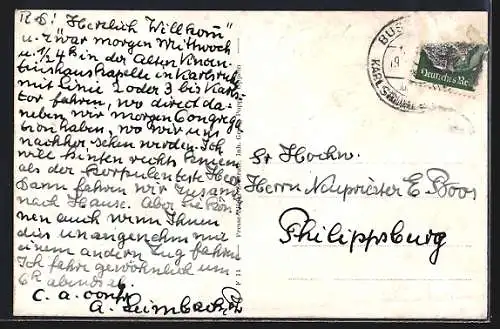 L. B! Herzlich Willkom̄"
u. zwar morgen Mittwoch
u. 1/2 4 h in der Alten Vincen-
tiushauskapelle in Karlsruhe
mit Linie 2 oder 3 bis Karls-
tor fahren, wo direct da-
neben wir morgen Congrega
tion haben, wo wir uns
nachher sehen werden. Ich
will hinten rechts knien
als der korpulenteste Herr
Dann fahren wir zusam̄
nach Hause. Aber Sie kön-
nen auch wenn Ihnen
dies unangenehm mit
einem andern Zug fahren
Ich fahre gewöhnlich um
6h abends ab.
c. a. confr.
A. Leimbach
Deutsches Re
Sr Hochw.
Herrn Neupriester E. Boos
Philippsburg